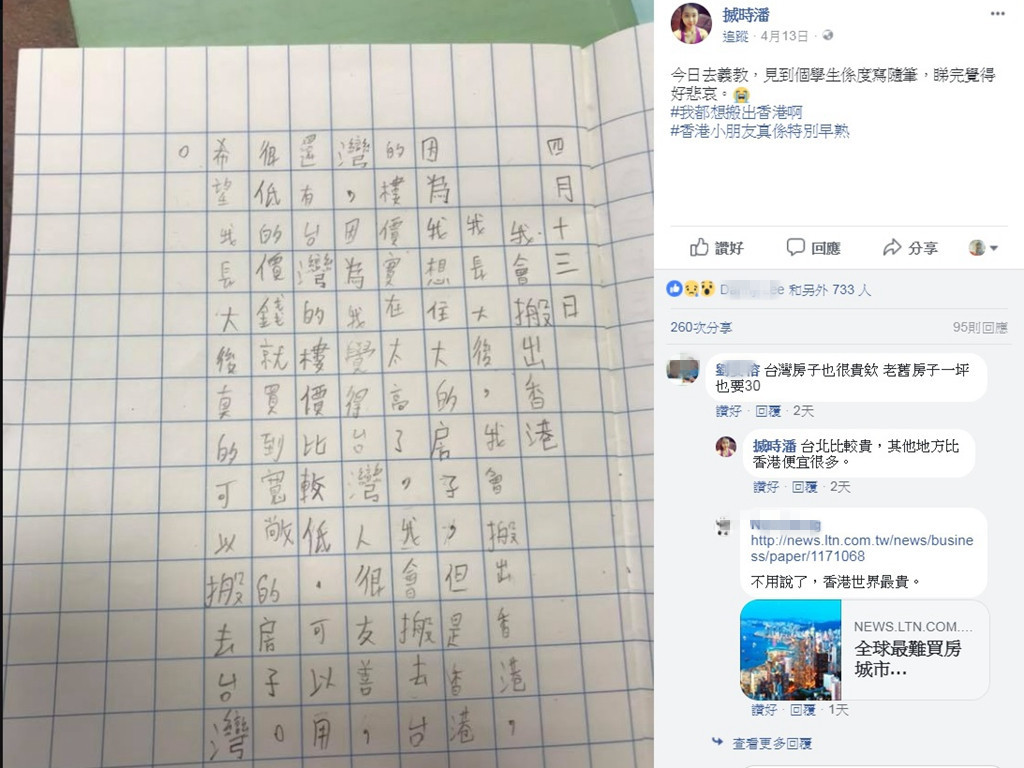 四月十三日
我會搬出香港
我長大後，我會搬出香港，
因為我想住大的房子，但是香港
的樓價實在太高了，我會搬去台
灣，因為我覺得台灣人很友善，
還有台灣的樓價比較低，可以用
很低的價錢就買到寬敞的房子。
希望我長大後真的可以搬去台灣
。
搣時潘
追蹤 · 4月13日 ·
今日去義教，見到個學生係度寫隨筆，睇完覺得
好悲哀。😭
#我都想搬出香港啊
#香港小朋友真係特別早熟
讚好 回應 分享
和另外 733 人
260次分享 95則回應
台灣房子也很貴欸 老舊房子一坪
也要30
讚好 · 回覆 · 2天
搣時潘 台北比較貴，其他地方比
香港便宜很多。
讚好 · 回覆 · 2天
http://news.ltn.com.tw/news/busine
ss/paper/1171068
不用說了，香港世界最貴。
NEWS.LTN.COM....
全球最難買房
城市...
讚好 · 回覆 · 1天
查看更多回覆